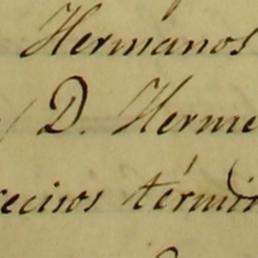 Hermanos
D. Herme
recisos térmi